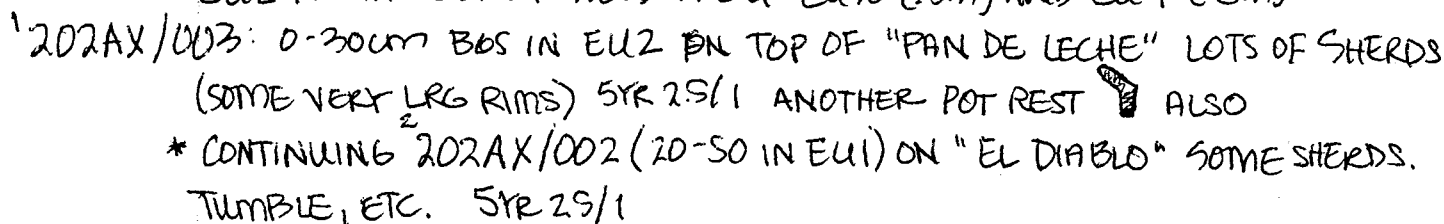 '202AX/003: 0-30cm BOS IN EU2 ON TOP OF "PAN DE LECHE" LOTS OF SHERDS
(SOME VERY LRG RIMS) 5YR 2.5/1 ANOTHER POT REST ALSO
* CONTINUING 2 202AX/002 (20-50 IN EU1) ON "EL DIABLO" SOME SHERDS.
TUMBLE, ETC. 5YR 2.5/1